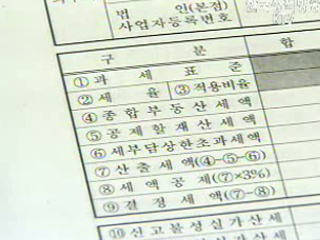 법 인(본점)
사업자등록번호
구 분 합
①과 세 표 준
②세 율 ③적용비율
④종합부동산세액
⑤공제할재산세액
⑥세부담상한초과세액
⑦산출세액(④-⑤-⑥)
⑧세 액 공 제(⑦×3%)
⑨결 정 세 액(⑦-⑧)
⑩신고불성실가산세